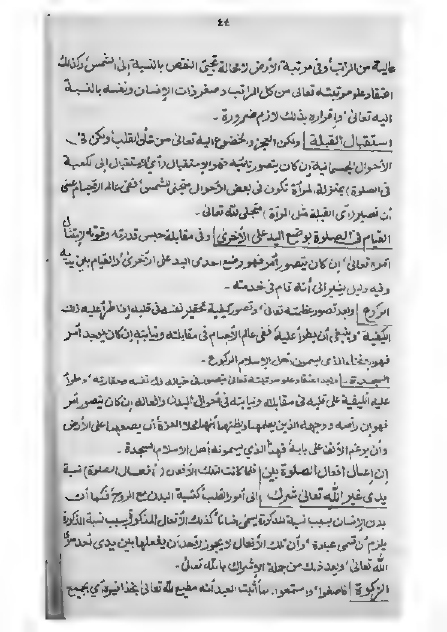 ٤٤
عالية من المراتب وفى مرتبة الأرض لا محالة تجئ النقص بالنسبة إلى الشمس وكذلك
اعتقاد علو مرتبته تعالى من كل المراتب وصغر ذات الإنسان ونفسه بالنسبة
اليه تعالى واقراره بذلك لازم ضرورة .
استقبال القبلة ولكن العجز والخضوع اليه تعالى من شأن القلب ولكن فى
الأحوال الجسمانية إن كان يتصور نائبه فهو الإستقبال (أى الإستقبال إلى كعبة
فى الصلوة) بمنزلة المرآة تكون فى بعض الأحوال متجلى الشمس ففى عالم الأجسام عسى
أن تصير (أى القبلة مثل المرآة) متجلى لله تعالى .
القيام فى الصلوة بوضع اليد على الأخرى وفى مقابلة قدرته وقوته
تعالى إن كان يتصور أمر فهو وضع احدى اليد على الأخرى والقيام بين يديه
وفيه دليل يشير الى أنه قام فى خدمته .
الركوع وبعد تصور عظمته تعالى وتصور كيفية تحقير نفسه فى قلبه إذا طرأ عليه تلك
الكيفية وينبغى أن يطرأ عليه ففى عالم الأجسام فى مقابلته ونيابته إن كان يوجد أمر
فهو الذى يسمونه أهل الإسلام الركوع .
السجدة . وبعد اعتقاد علو مرتبته تعالى يتصور فى خياله ذلك نفسه وحقارته وطرأ
عليه الكيفية على قلبه فى مقابلته ونيابته فى أحوال البدن والحالة إن كان يتصور أمر
فهو ان رأسه ووجهه الذين يعلمهما ويظنهما أنهما محلا العزة أن يضعها على الأرض
وأن يرغم الأنف على بابه فهذا الذى يسمونه أهل الإسلام السجدة .
إن إعمال أفعال الصلوة بين فلما كانت لتلك الأفعال (أفعال الصلوة) نسبة
يدى غير الله تعالى شرك إلى أمور القلب كنسبة البدن مع الروح فكما أن
بدن الإنسان بسبب نسبة المذكورة يسمى انسانا كذلك الأفعال المذكورة بسبب نسبة المذكورة
يلزم أن تسمى عبادة وأن تلك الأفعال لا يجوز لأحد أن يفعلها بين يدى أحد غير
الله تعالى ويعد ذلك من جملة الإشراك بالله تعالى .
الزكوة فاصغوا واستمعوا . لما أثبت العبد أنه مطيع لله تعالى بحذافيره أى بجميع